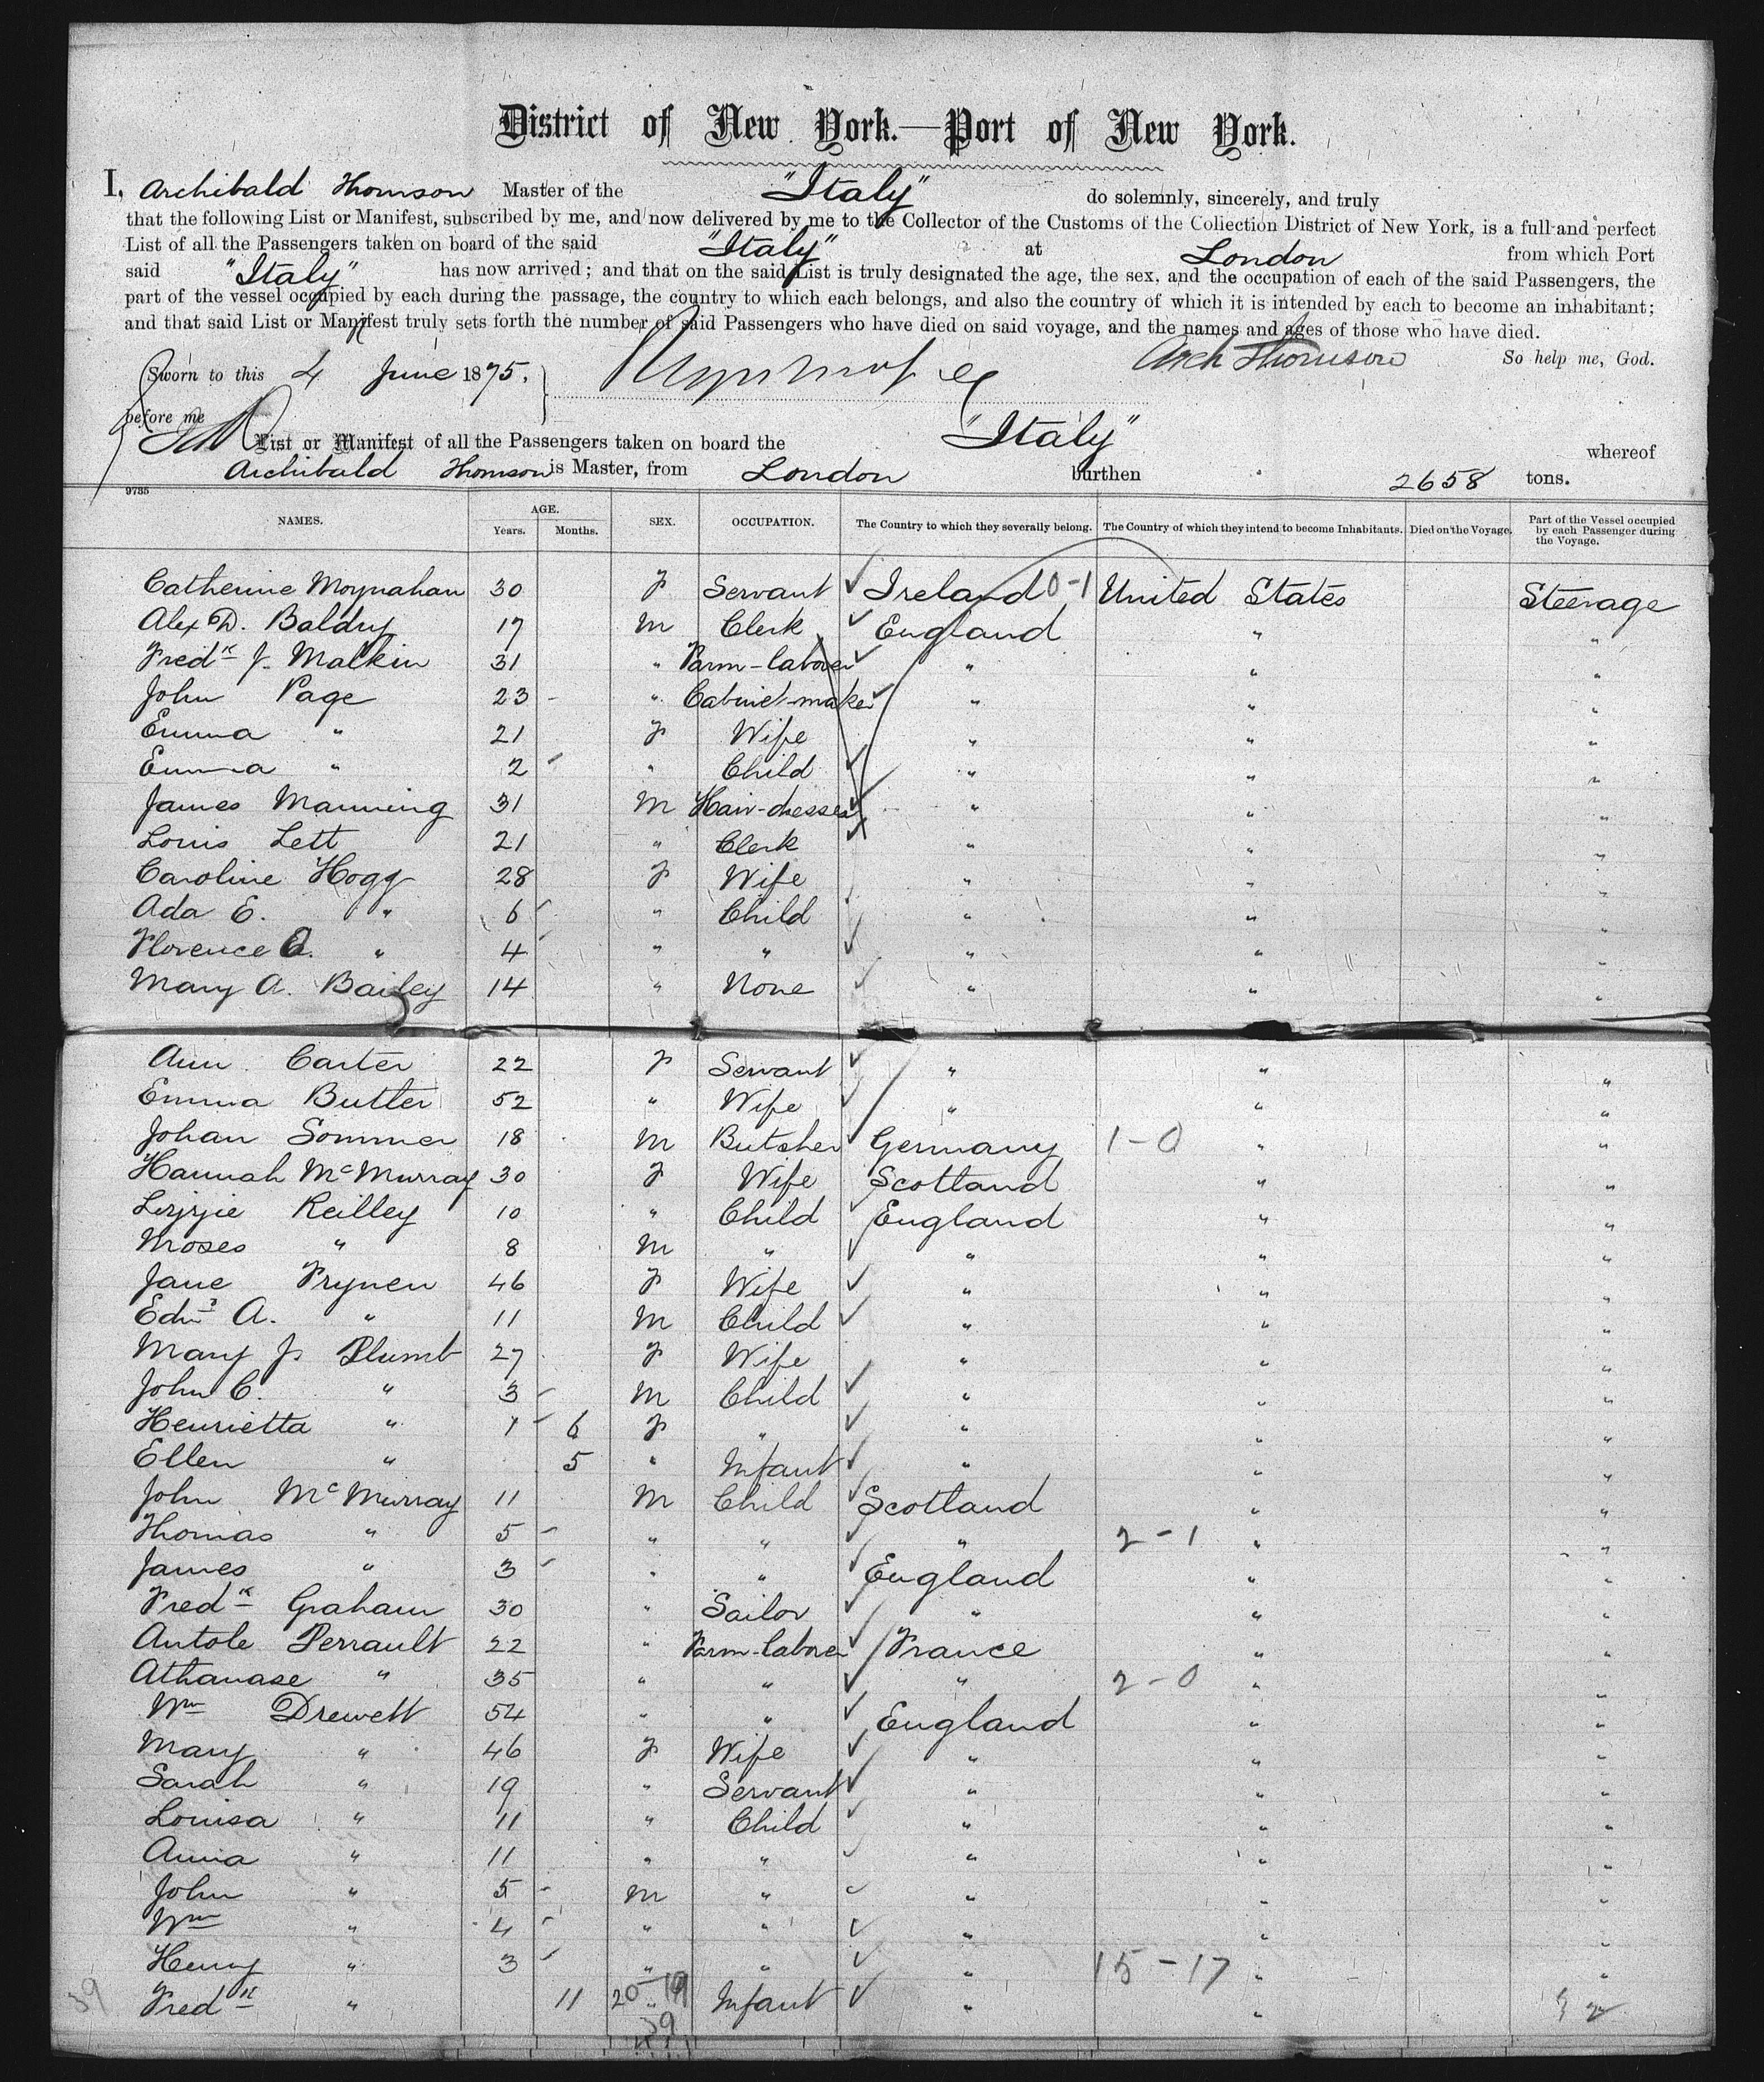 District of New York.—Port of New York.
I, Archibald Thomson Master of the "Italy" do solemnly, sincerely, and truly
that the following List or Manifest, subscribed by me, and now delivered by me to the Collector of the Customs of the Collection District of New York, is a full and perfect
List of all the Passengers taken on board of the said "Italy" at London from which Port
said "Italy" has now arrived; and that on the said List is truly designated the age, the sex, and the occupation of each of the said Passengers, the
part of the vessel occupied by each during the passage, the country to which each belongs, and also the country of which it is intended by each to become an inhabitant;
and that said List or Manifest truly sets forth the number of said Passengers who have died on said voyage, and the names and ages of those who have died.
Arch Thomson So help me, God.
Sworn to this 4 June 1875.
before me
List or Manifest of all the Passengers taken on board the "Italy" whereof
Archibald Thomson is Master, from London burthen 2658 tons.
9735
NAMES. AGE. Years. Months. SEX. OCCUPATION. The Country to which they severally belong. The Country of which they intend to become Inhabitants. Died on the Voyage. Part of the Vessel occupied by each Passenger during the Voyage.
Catherine Moynahan 30 F Servant Ireland 0-1 United States Steerage
Alex D. Baldry 17 M Clerk England " "
Fredk J. Malkin 31 " Farm-laborer " " "
John Page 23 " Cabinet-maker " " "
Emma " 21 F Wife " " "
Emma " 2 " Child " " "
James Manning 31 M Hair-dresser " " "
Louis Lett 21 " Clerk " " "
Caroline Hogg 28 F Wife " " "
Ada E. " 6 " Child " " "
Florence E. " 4 " " " " "
Mary A. Bailey 14 " None " " "
Ann Carter 22 F Servant " " "
Emma Butler 52 " Wife " " "
Johan Sommer 18 M Butcher Germany 1-0 " "
Hannah McMurray 30 F Wife Scotland " "
Lizzie Reilley 10 " Child England " "
Moses " 8 M " " " "
Jane Frynen 46 F Wife " " "
Edwd A. " 11 M Child " " "
Mary J. Plumb 27 F Wife " " "
John C. " 3 M Child " " "
Henrietta " 1 6 F " " " "
Ellen " 5 " Infant " " "
John McMurray 11 M Child Scotland " "
Thomas " 5 " " " 2-1 " "
James " 3 " " England " "
Fredk Graham 30 " Sailor " " "
Antole Perrault 22 " Farm-laborer France " "
Athanase " 35 " " " 2-0 " "
Wm Drewett 54 " " England " "
Mary " 46 F Wife " " "
Sarah " 19 " Servant " " "
Louisa " 11 " Child " " "
Anna " 11 " " " " "
John " 5 M " " " "
Wm " 4 " " " " "
Henry " 3 " " " 15-17 " "
39 Fredk " 11 20-19 " Infant " " "
39